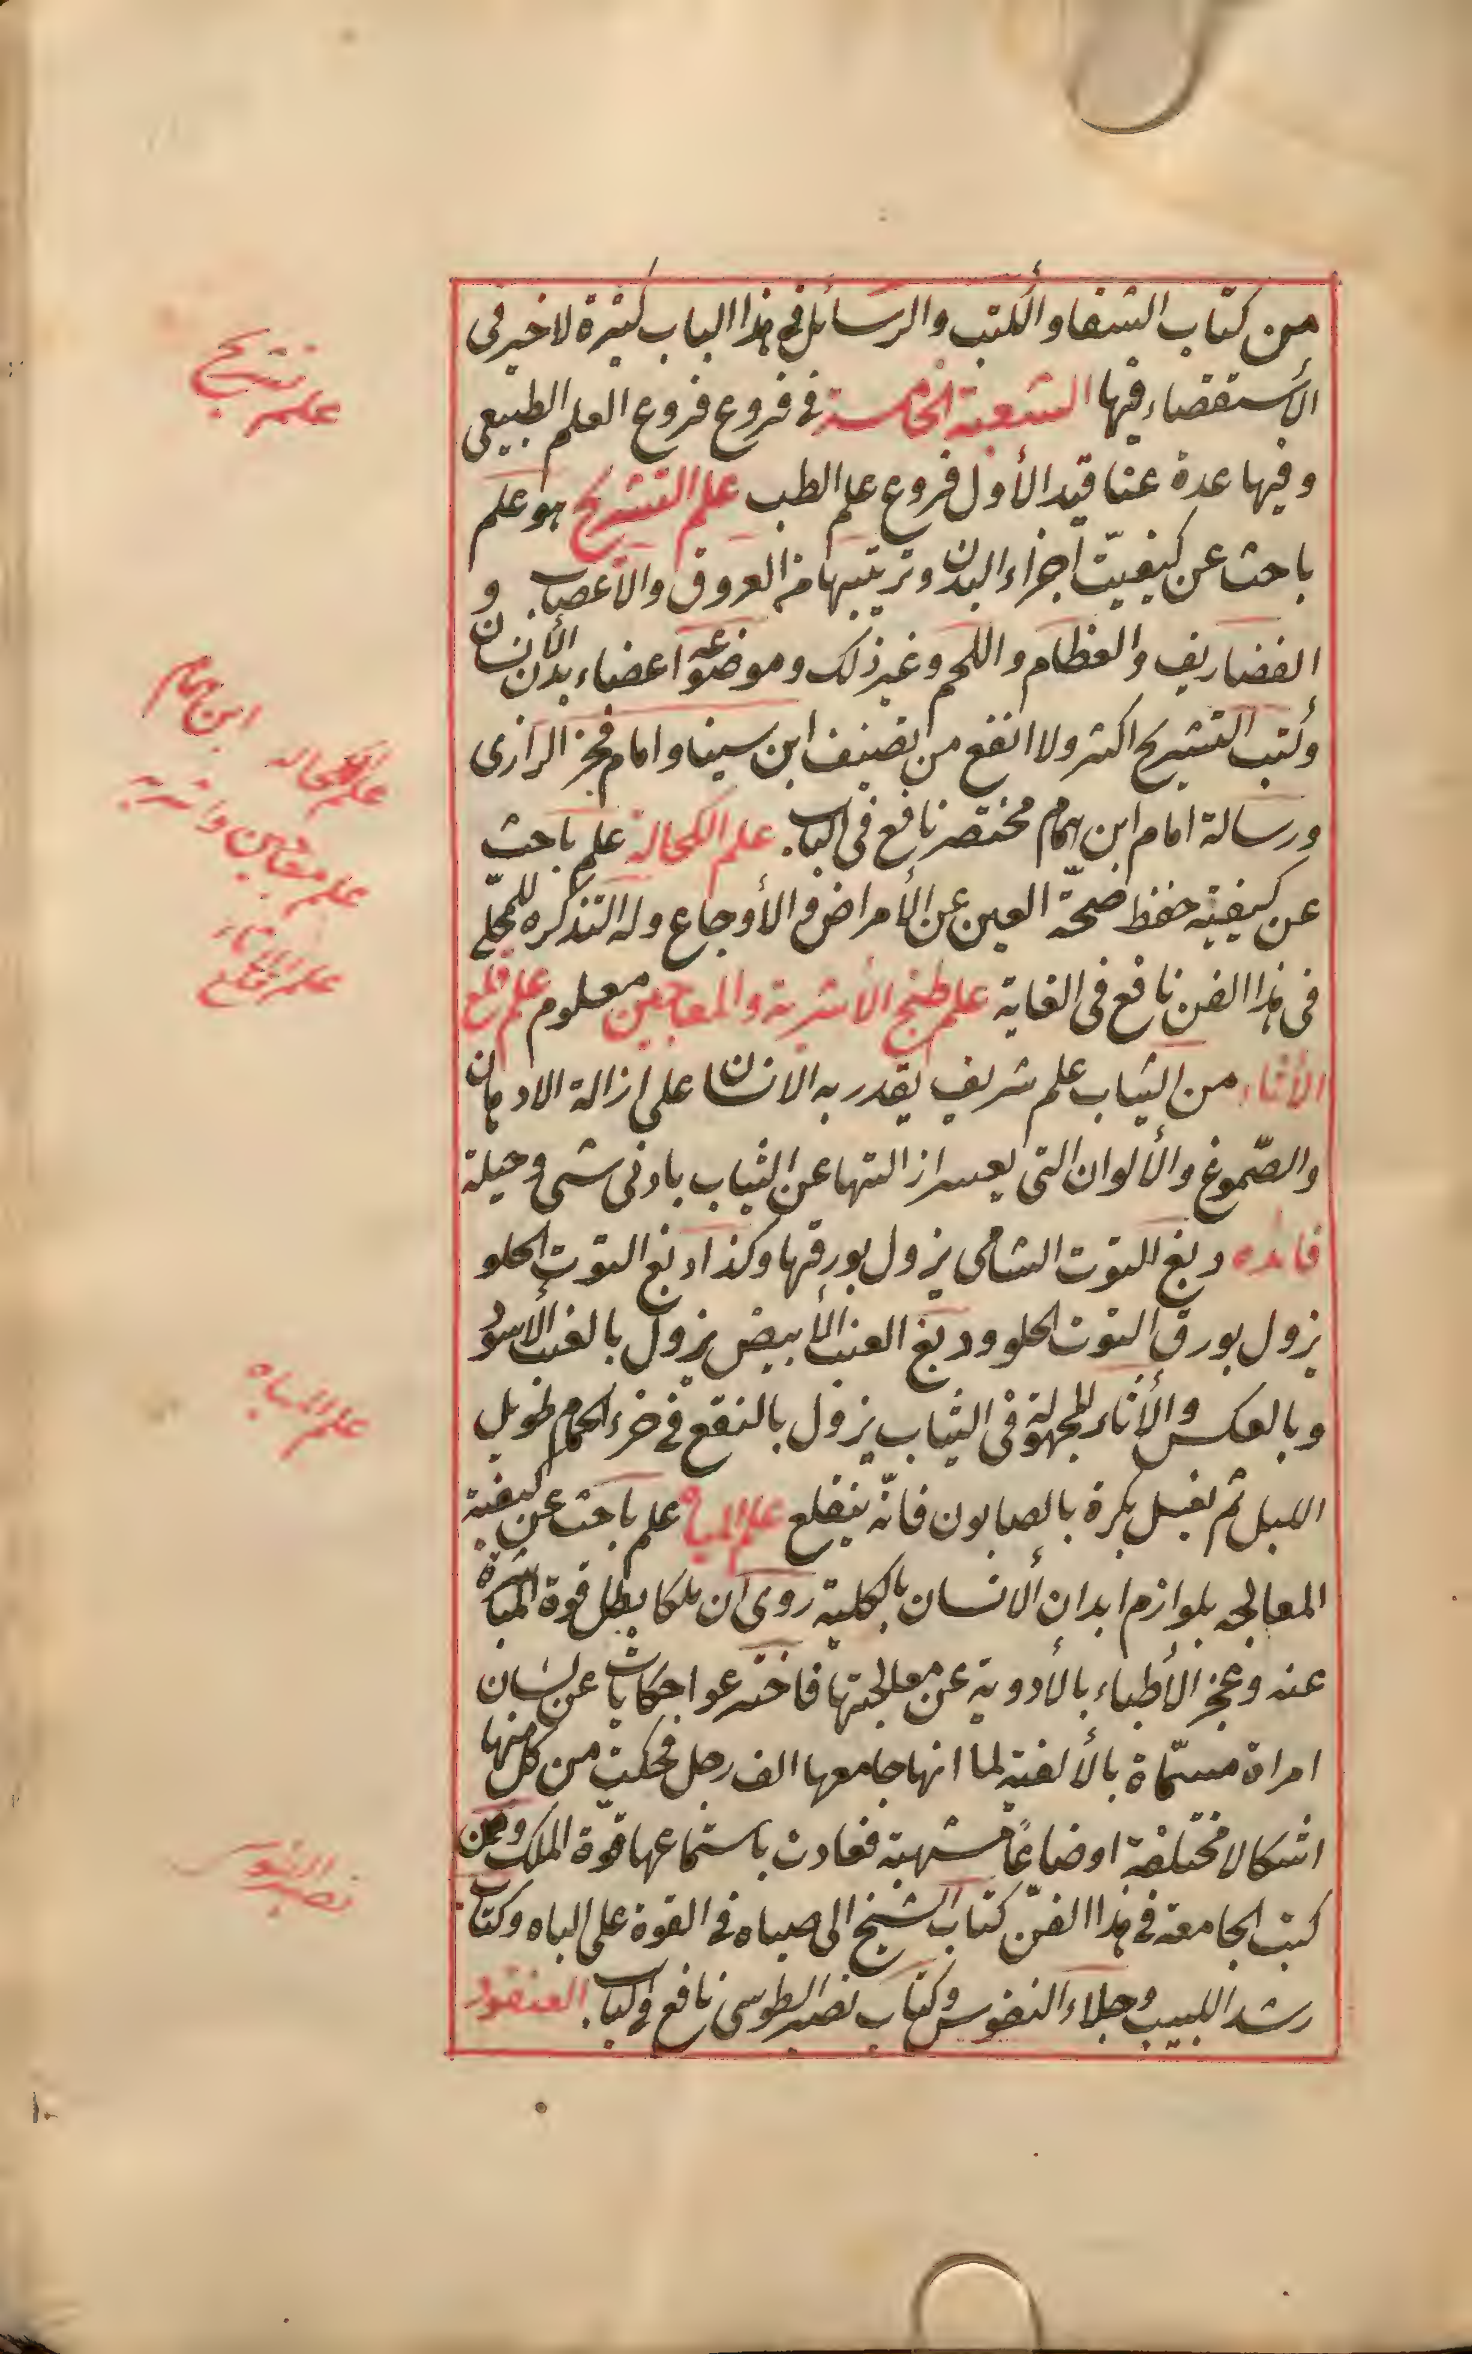 من كتاب الشفا والكتب والرسائل فى هذا الباب كثيرة لا خير فى
الأستقصاء فيها الشعبة الخامسة فى فروع فروع العلم الطبيعى
وفيها عدة عناقيد الأول فروع علم الطب علم التشريح هو علم
باحث عن كيفيّت أجزاء البدن وترتيبها من العروق والأعصاب و
الغضاريف والعظام واللحم وغير ذلك وموضوعه اعضاء بدن الأنسان
وكتب التشريح اكثر ولا انفع من تصنيف ابن سينا وامام فخر الرازى
ورسالة امام ابن همام مختصر نافع فى الباب علم الكحالة علم باحث
عن كيفية حفظ صحّة العين عن الأمراض والأوجاع وله التذكره للكحلّى
فى هذا الفن نافع فى الغاية علم طبخ الأشربة والمعاجين معلوم علم قلع
الأثار من الثياب علم شريف يقدر به الانسان على ازالة الادهان
والصّموغ والألوان التى يعسر ازالتها عن الثياب بادنى شى وحيلة
فائده دبغ التوت الشامى يزول بورقها وكذا دبغ التوت الحلو
يزول بورق التوت الحلو ودبغ العنب الأبيض يزول بالعنب الأسود
وبالعكس والأثار المجهولة فى الثياب يزول بالنقع فى خرء الحمام طويل
الليل ثم يغسل بكرة بالصابون فانّه ينقلع علم الباه علم باحث عن كيفية
المعالجه بلوازم ابدان الأنسان بالكلية روى ان ملكا بطل قوة المباشرة
عنه وعجز الأطباء بالأدوية عن معالجتها فاخترعوا حكايات عن لسان
امراة مسمّاة بالألفية لما انها جامعها الف رجل فحكيت من كل منها
اشكالا مختلفة اوضاعًا مشتهية فعادت باستماعها قوّة الملك ومن
كتب الجامعة فى هذا الفنّ كتاب الشيخ الى صباه فى القوة على الباه وكتاب
رشد اللبيب وجلاء النفوس وكتاب نصير الطوسى نافع فى الباب العنقود
علم تشريح
ابن همام
علم الكحاله
علم معاجين واشربه
علم الاثار
علم الباه
نصير الطوسى